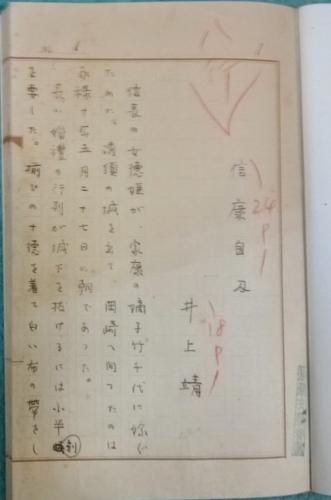 八行
信康自刃
24P
井上靖
18P
信長の女徳姫が、家康の嫡子竹千代に嫁ぐ
ために、清須の城を出て、岡崎へ向ったのは
永禄十年五月二十七日の朝であった。
長い婚禮の行列が城下を抜けるには小半刻
を要した。揃ひの十徳を着て白い布の帯をし